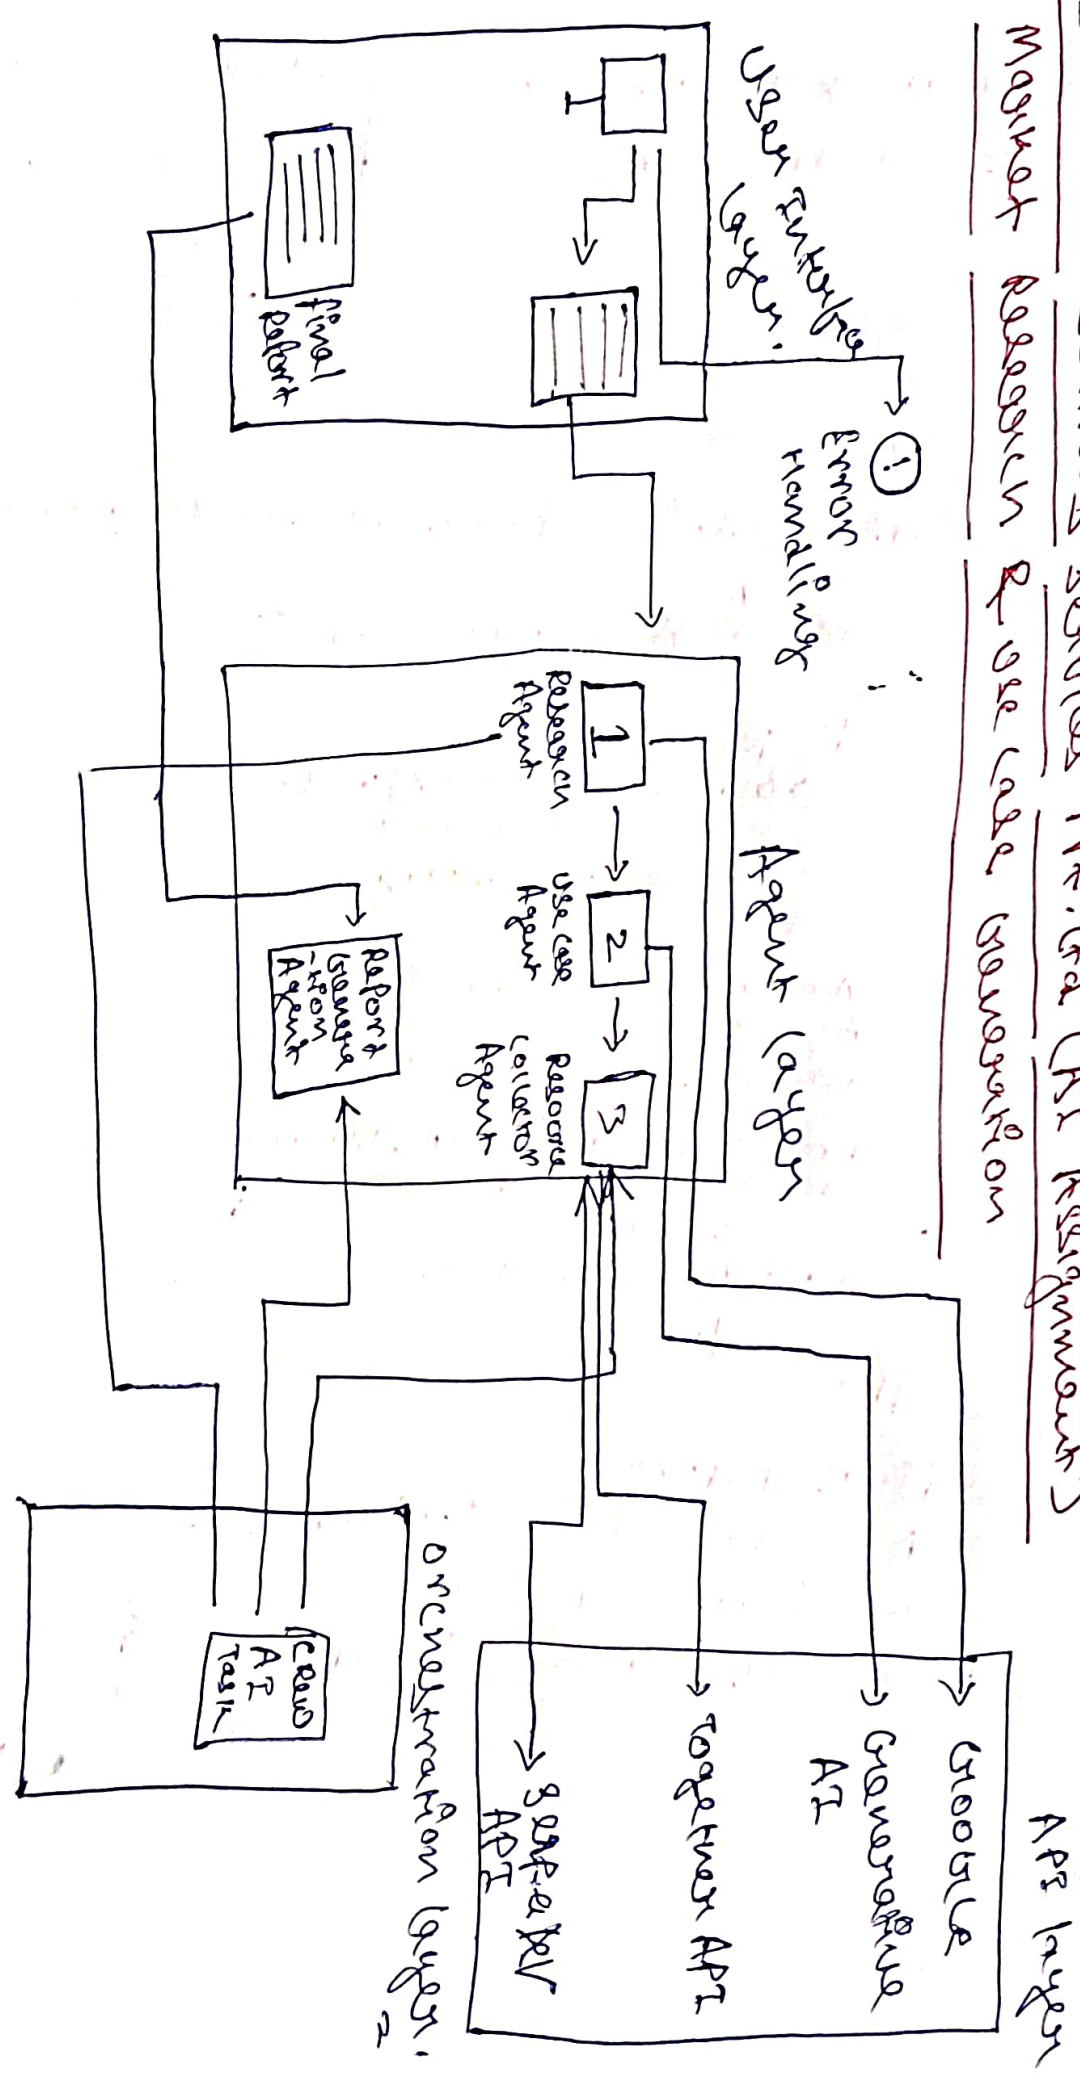 Services Pvt. Ltd (AI Assignment)
Market Research & Use Case Generation
User Interface
Layer.
Error
Handling
!
Final
Report
Agent Layer
1
Research
Agent
2
Use Case
Agent
3
Resource
Collector
Agent
Report
Genera
-tion
Agent
API Layer
Google
Generative
AI
Together API
API
Orchestration Layer.
Crew
AI
Task